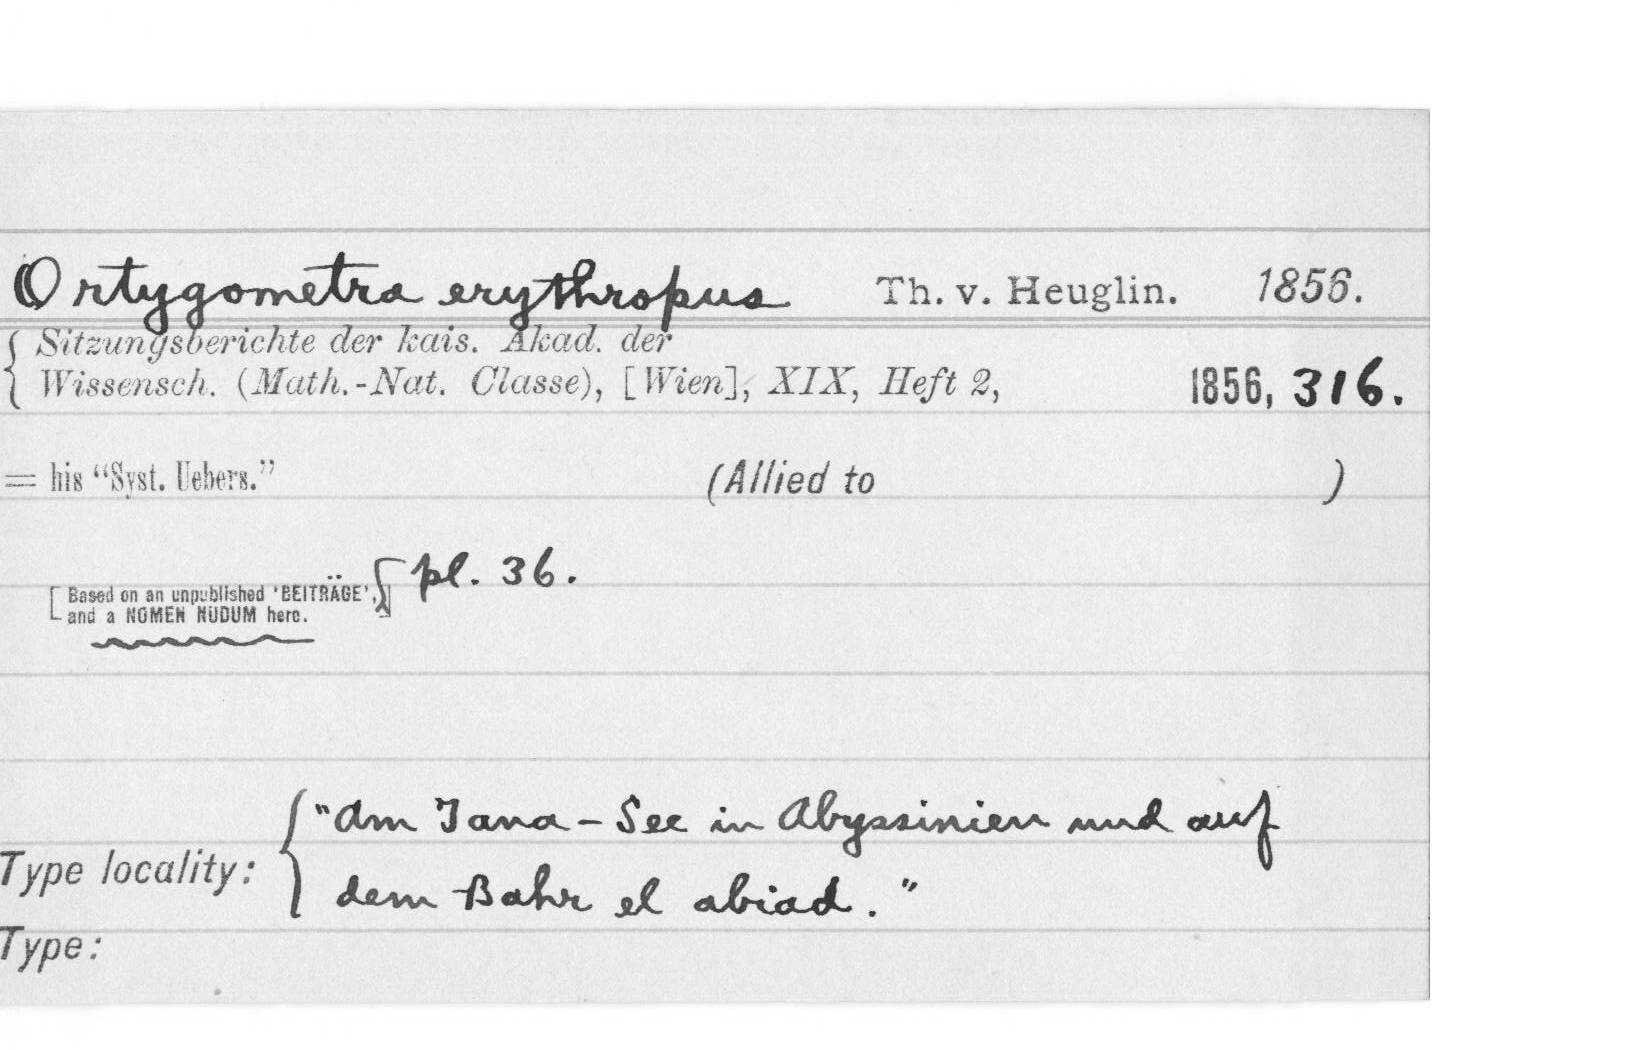 Ortygometra erythropus Th. v. Heuglin. 1856.
Sitzungsberichte der kais. Akad. der
Wissensch. (Math.-Nat. Classe), [Wien], XIX, Heft 2, 1856, 316.
= his “Syst. Uebers.” (Allied to )
pl. 36.
[Based on an unpublished ‘BEITRÄGE’,]
and a NOMEN NUDUM here.
"Am Tana-See in Abyssinien und auf
Type locality:
dem Bahr el abiad."
Type: